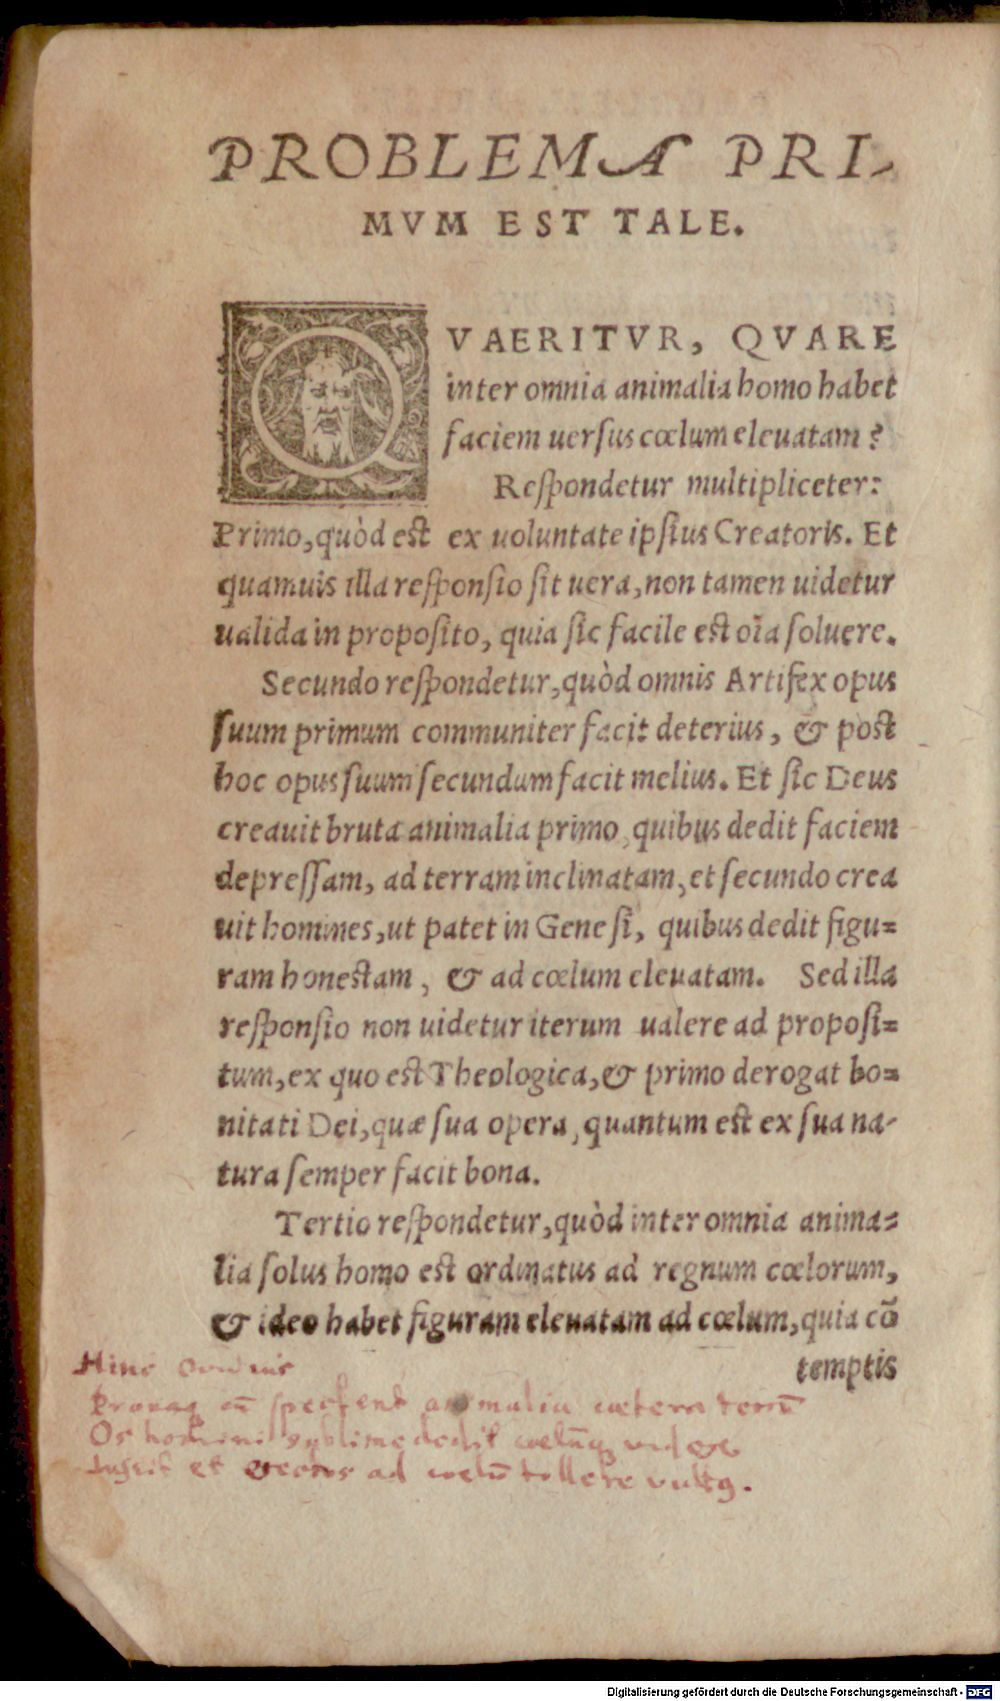 PROBLEMA PRI-
MVM EST TALE.
QVAERITVR, QVARE
inter omnia animalia homo habet
faciem uersus cœlum eleuatam?
Respondetur multipliceter:
Primo, quòd est ex uoluntate ipsius Creatoris. Et
quamuis illa responsio sit uera, non tamen uidetur
ualida in proposito, quia sic facile est oīa soluere.
Secundo respondetur, quòd omnis Artifex opus
suum primum communiter facit deterius, & post
hoc opus suum secundum facit melius. Et sic Deus
creauit bruta animalia primo, quibus dedit faciem
depressam, ad terram inclinatam, et secundo crea
uit homines, ut patet in Genesi, quibus dedit figu=
ram honestam, & ad cœlum eleuatam. Sed illa
responsio non uidetur iterum ualere ad proposi=
tum, ex quo est Theologica, & primo derogat bo=
nitati Dei, quæ sua opera, quantum est ex sua na-
tura semper facit bona.
Tertio respondetur, quòd inter omnia anima=
lia solus homo est ordinatus ad regnum cœlorum,
& ideo habet figuram eleuatam ad cœlum, quia cō
temptis
Hinc Ouidius
Pronaq cū spectent animalia cætera terrā
Os homini sublime dedit cœlūq videre
Iussit et erectos ad coelū tollere vultus.
Digitalisierung gefördert durch die Deutsche Forschungsgemeinschaft - DFG